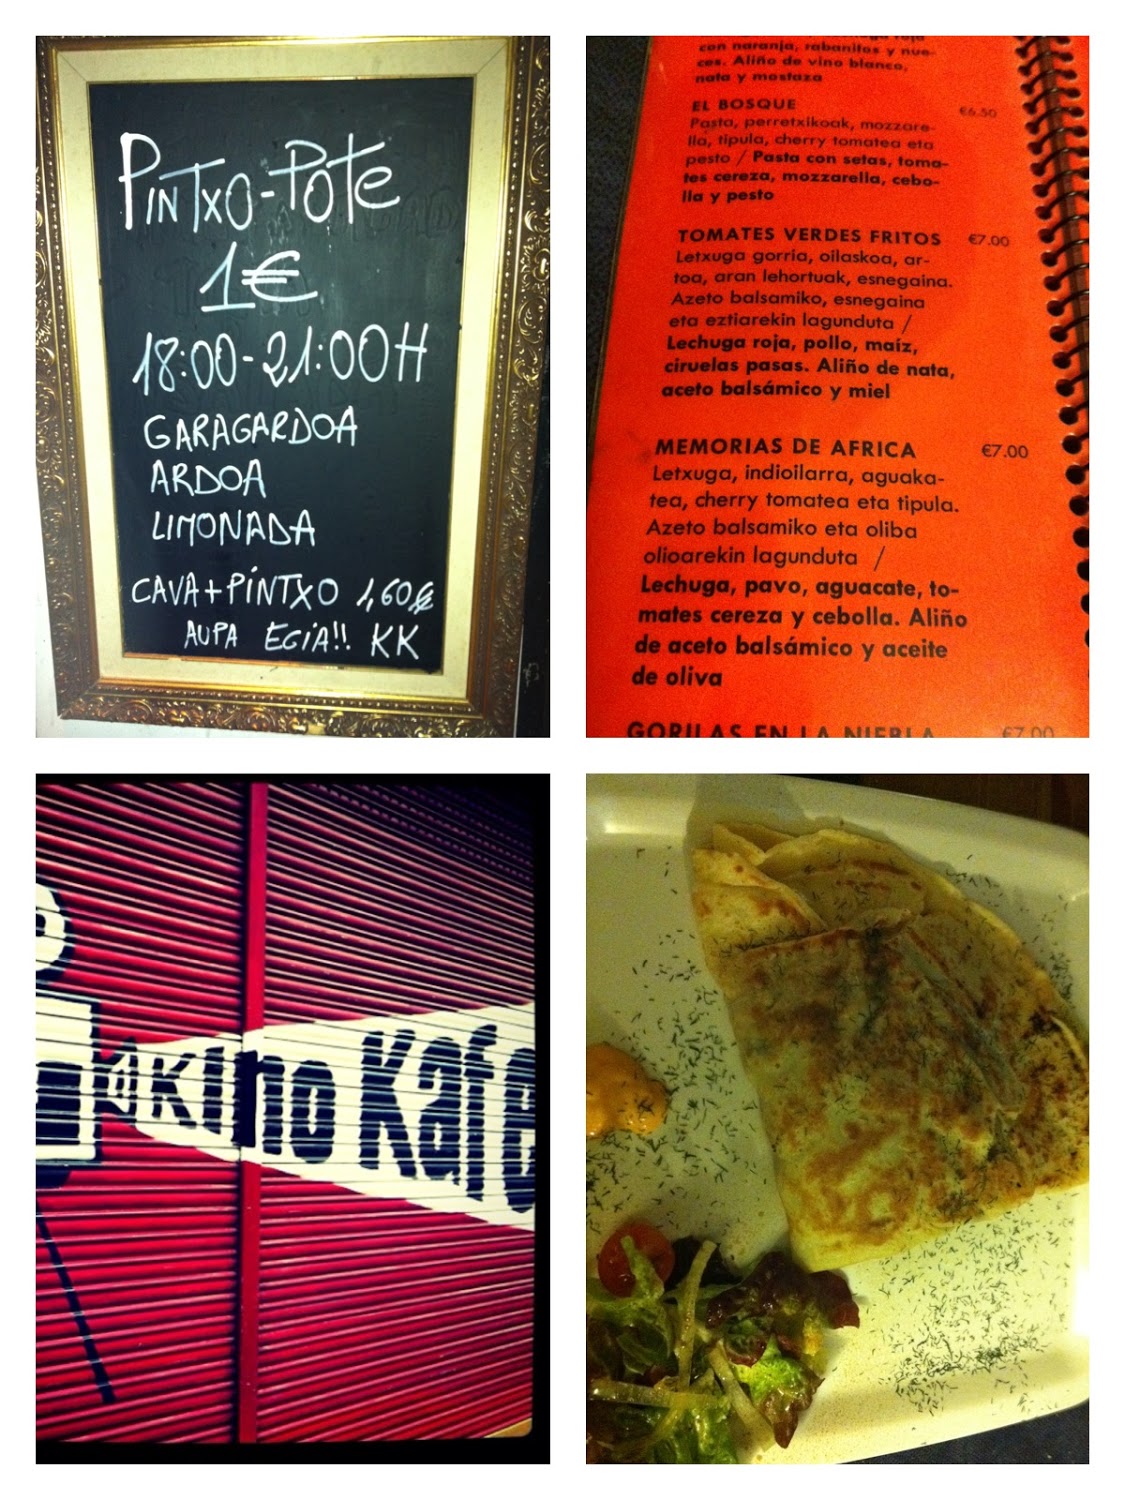 PINTXO-POTE
1€
18:00-21:00H
GARAGARDOA
ARDOA
LIMONADA
CAVA+PINTXO 1,60€
AUPA EGIA!! KK
con naranja, rabanitos y nue-
ces. Aliño de vino blanco,
nata y mostaza
EL BOSQUE €6.50
Pasta, perretxikoak, mozzare-
lla, tipula, cherry tomatea eta
pesto / Pasta con setas, toma-
tes cereza, mozzarella, cebo-
lla y pesto
TOMATES VERDES FRITOS €7.00
Letxuga gorria, oilaskoa, ar-
toa, aran lehortuak, esnegaina.
Azeto balsamiko, esnegaina
eta eztiarekin lagunduta /
Lechuga roja, pollo, maíz,
ciruelas pasas. Aliño de nata,
aceto balsámico y miel
MEMORIAS DE AFRICA €7.00
Letxuga, indioilarra, aguaka-
tea, cherry tomatea eta tipula.
Azeto balsamiko eta oliba
olioarekin lagunduta /
Lechuga, pavo, aguacate, to-
mates cereza y cebolla. Aliño
de aceto balsámico y aceite
de oliva
GORILAS EN LA NIEBLA €7.00
Kino Kafe